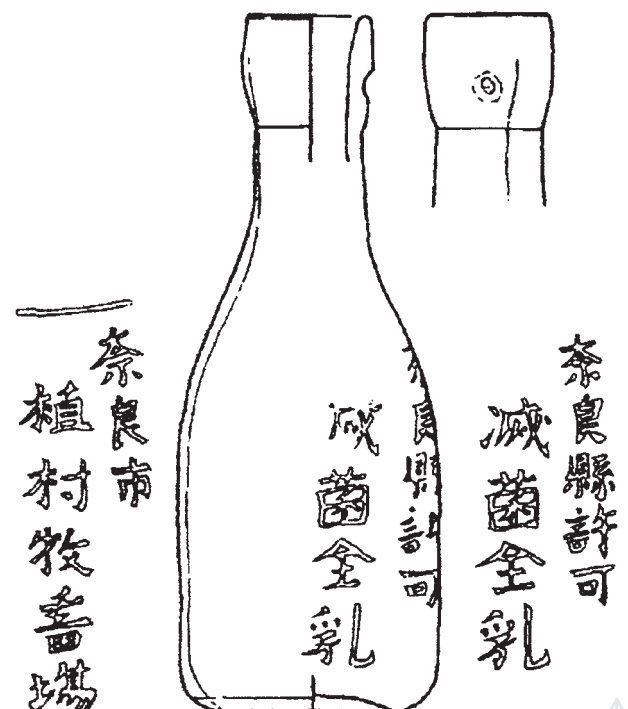 奈良縣許可
滅菌全乳
奈良縣許可
滅菌全乳
奈良市
植村牧畜場